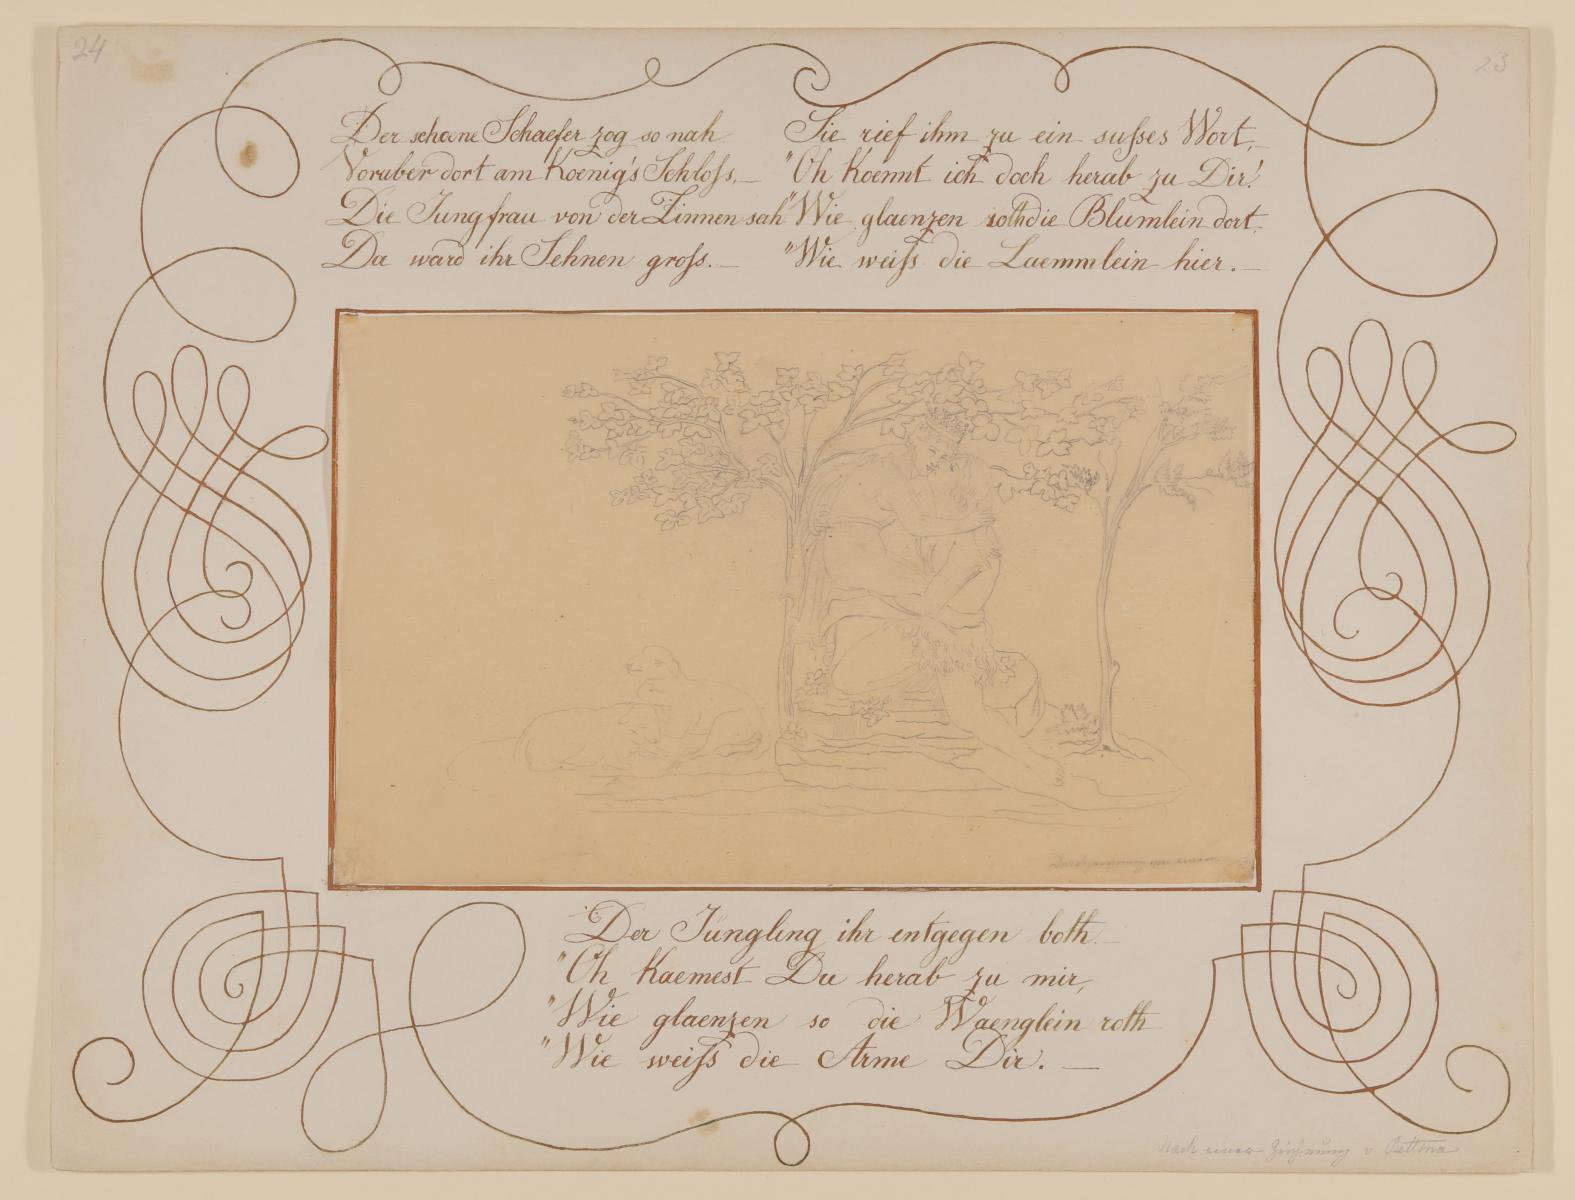 24
23
Der schoene Schaefer zog so nah
Voruber dort am Koenig's Schloss,—
Die Jungfrau von der Zinnen sah
Da ward ihr Sehnen gross.—
Sie rief ihm zu ein susses Wort,—
"Oh Koennt ich doch herab zu Dir!
"Wie glaenzen roth die Blumlein dort,
"Wie weiss die Laemmlein hier.—
Durchzeichnung von
Der Jüngling ihr entgegen both—
"Oh Kaemest Du herab zu mir,
"Wie glaenzen so die Waenglein roth
"Wie weiss die Arme Dir.—
Nach einer Zeichnung v Bettina